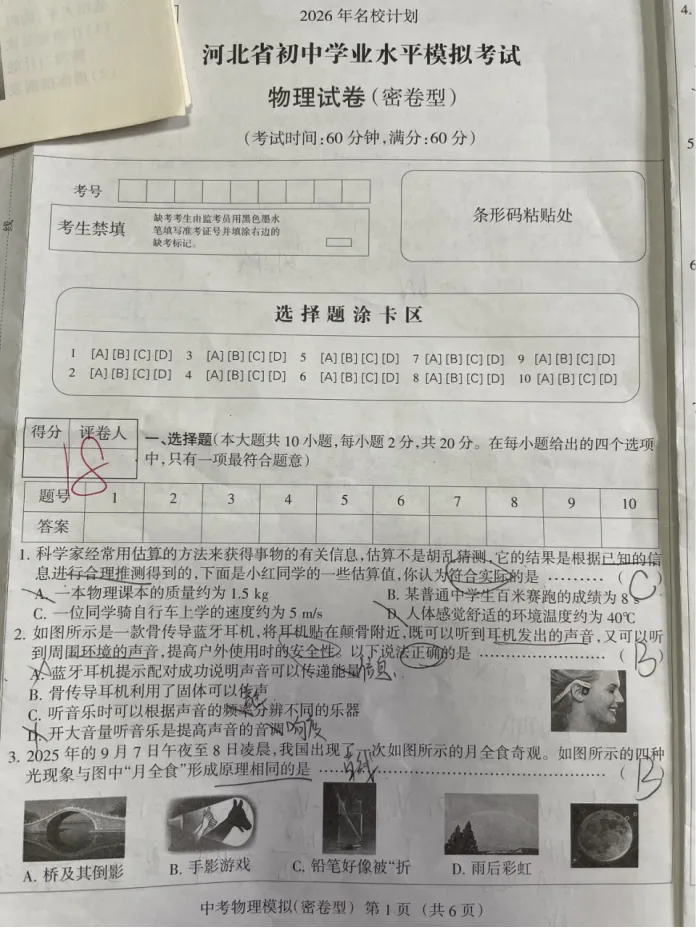 2026 年名校计划
河北省初中学业水平模拟考试
物理试卷(密卷型)
(考试时间:60 分钟,满分:60 分)
考号
考生禁填
缺考考生由监考员用黑色墨水
笔填写准考证号并填涂右边的
缺考标记。
条形码粘贴处
选择题涂卡区
1 [A] [B] [C] [D] 3 [A] [B] [C] [D] 5 [A] [B] [C] [D] 7 [A] [B] [C] [D] 9 [A] [B] [C] [D]
2 [A] [B] [C] [D] 4 [A] [B] [C] [D] 6 [A] [B] [C] [D] 8 [A] [B] [C] [D] 10 [A] [B] [C] [D]
得分 评卷人
18
一、选择题(本大题共 10 小题,每小题 2 分,共 20 分。在每小题给出的四个选项
中,只有一项最符合题意)
题号 1 2 3 4 5 6 7 8 9 10
答案
1. 科学家经常用估算的方法来获得事物的有关信息,估算不是胡乱猜测,它的结果是根据已知的信
息进行合理推测得到的,下面是小红同学的一些估算值,你认为符合实际的是 ……… ( C )
A. 一本物理课本的质量约为 1.5 kg B. 某普通中学生百米赛跑的成绩为 8 s
C. 一位同学骑自行车上学的速度约为 5 m/s D. 人体感觉舒适的环境温度约为 40℃
2. 如图所示是一款骨传导蓝牙耳机,将耳机贴在颠骨附近,既可以听到耳机发出的声音,又可以听
到周围环境的声音,提高户外使用时的安全性。以下说法正确的是 ……………………… ( B )
A. 蓝牙耳机提示配对成功说明声音可以传递能量 信息
B. 骨传导耳机利用了固体可以传声
C. 听音乐时可以根据声音的频率分辨不同的乐器
D. 开大音量听音乐是提高声音的音调 响度
3. 2025 年的 9 月 7 日午夜至 8 日凌晨,我国出现了一次如图所示的月全食奇观。如图所示的四种
光现象与图中“月全食”形成原理相同的是 ……………………………………… ( B )
A. 桥及其倒影 B. 手影游戏 C. 铅笔好像被“折 D. 雨后彩虹
中考物理模拟(密卷型) 第 1 页 (共 6 页)
4.
5
6
线